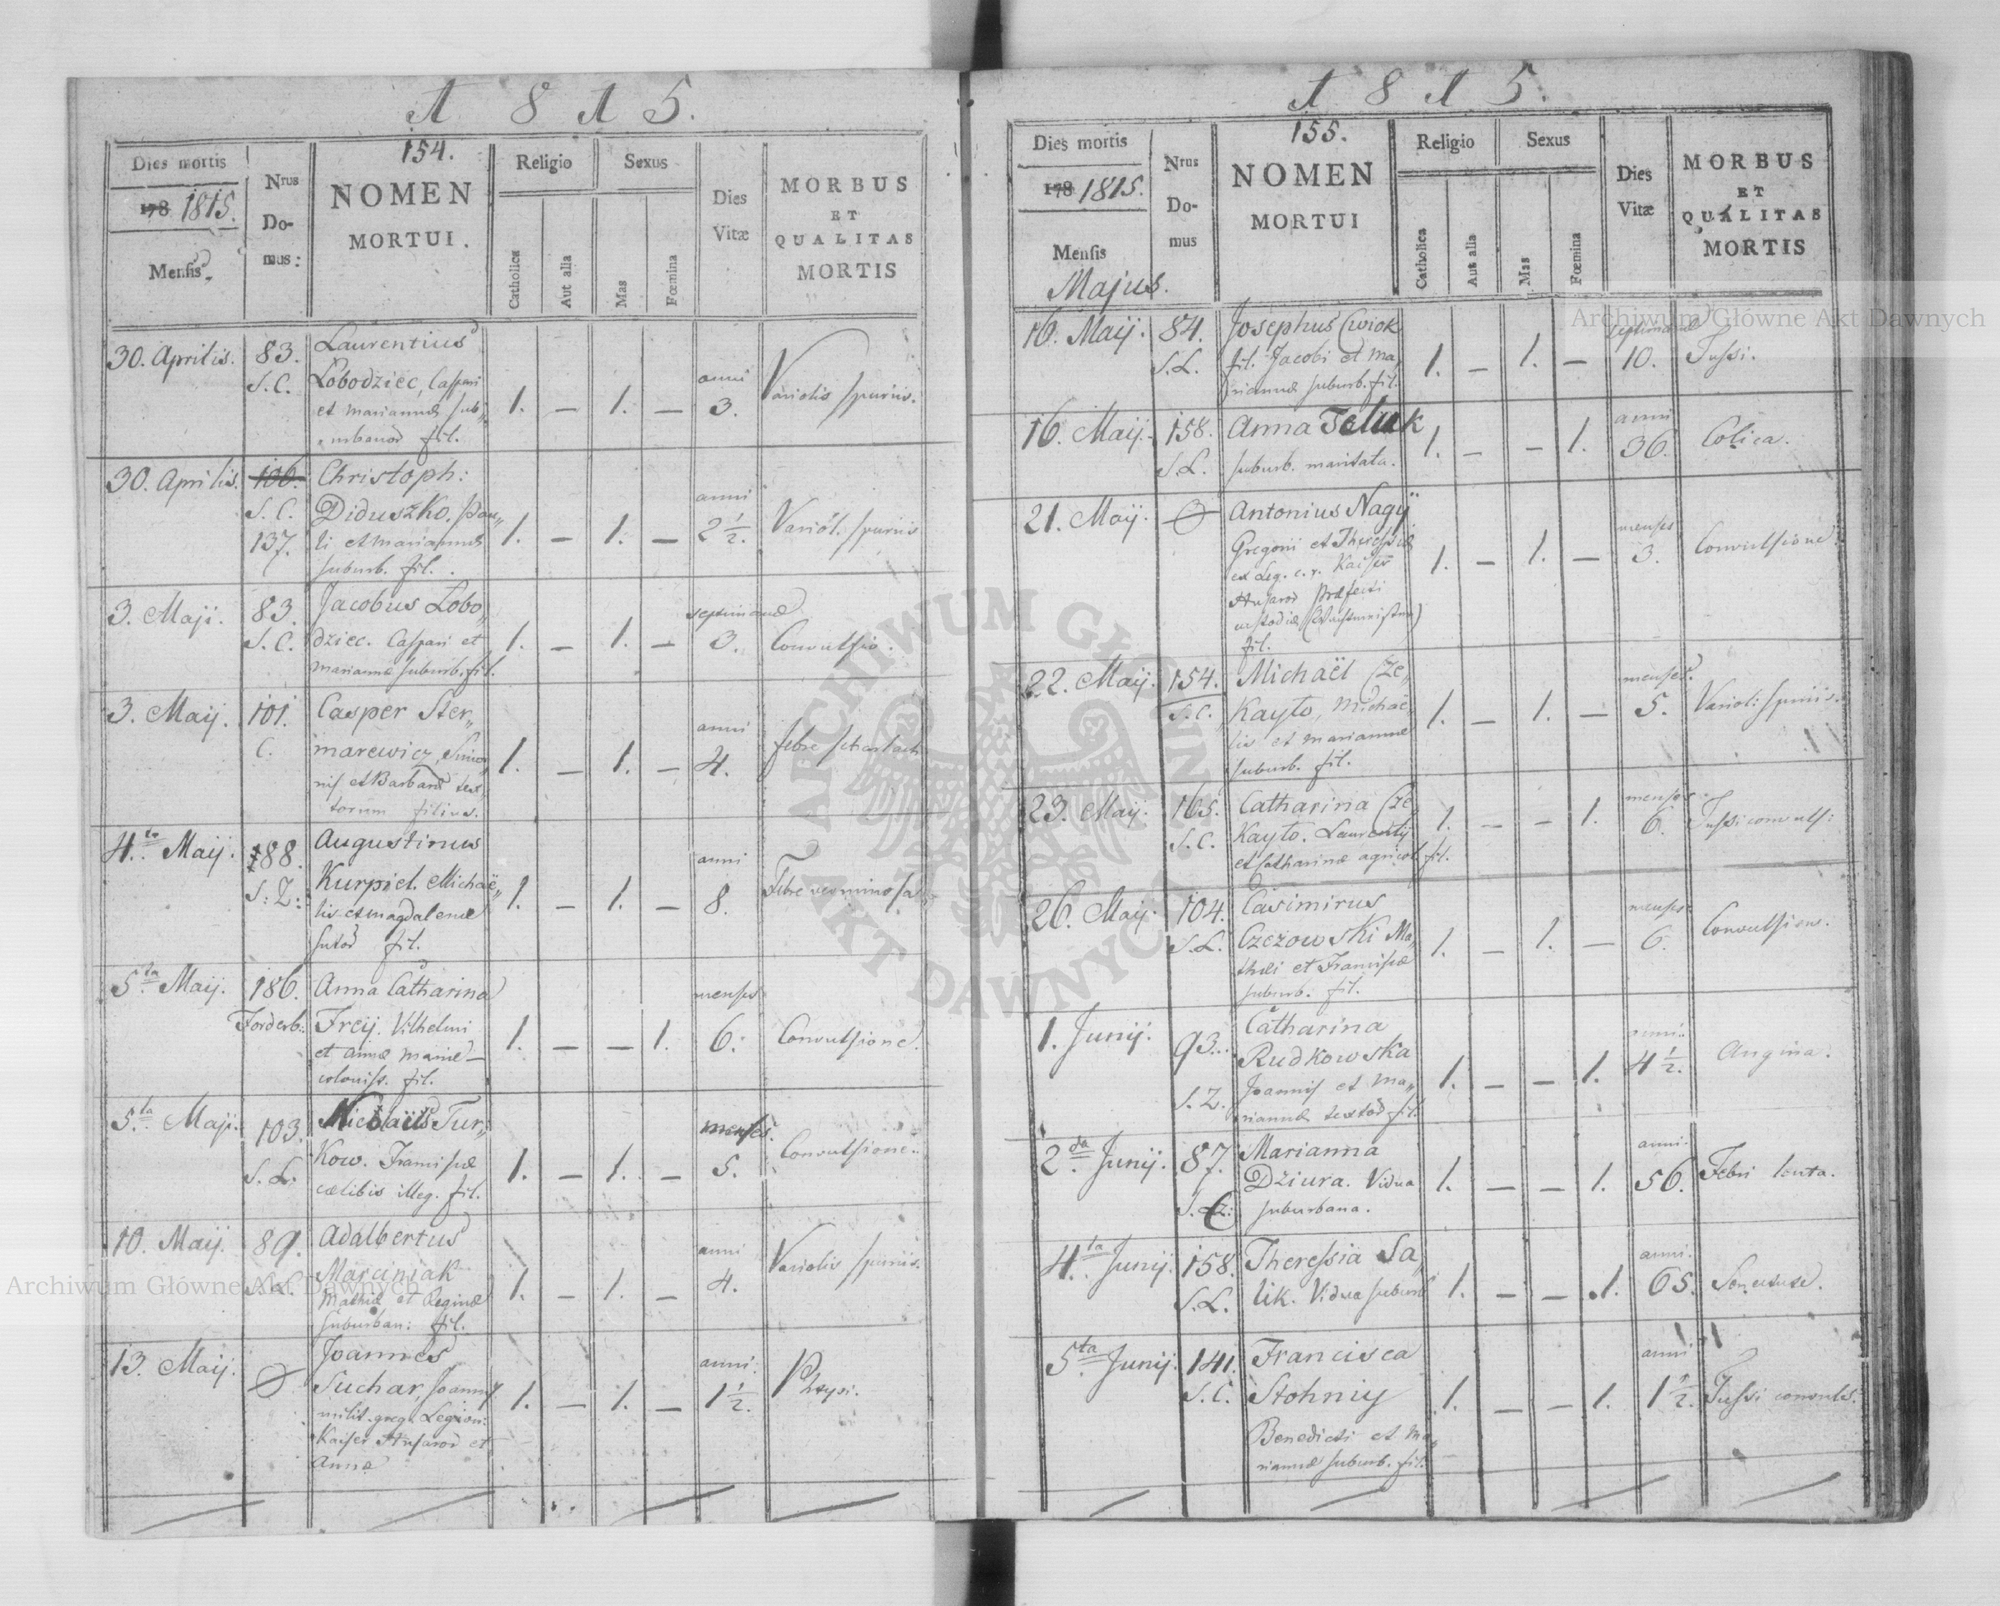 1 8 1 5.
Dies mortis
178 1815.
Mensis
Nrus
Do-
mus:
154.
NOMEN
MORTUI.
Religio
Catholica
Aut alla
Sexus
Mas
Fœmina
Dies
Vitæ
MORBUS
ET
QUALITAS
MORTIS
30. Aprilis.
83.
S. C.
Laurentius
Łobodziec, Caspari
et Mariannæ sub„
urbanor fil.
1. — 1. —
anni
3.
Variolis spuriis.
30. Aprilis.
106.
S. C.
137.
Christoph:
Diduszko, Pau„
li et Mariannæ
suburb. fil.
1. — 1. —
anni
2 1/2.
Variol. spuriis
3. Maji.
83.
S. C.
Jacobus Łobo„
dziec. Caspari et
Mariannæ suburb. fil.
1. — 1. —
septimanæ
3.
Convulsio.
3. Maij.
101.
C.
Casper Ster„
marewicz, Simo„
nis et Barbaræ tex„
torum filius.
1. — 1. —
anni
4.
febre scharlach
4.ta Maij.
188.
S: Z:
Augustinus
Kurpiel. Michaë„
lis et Magdalenæ
sutor fil.
1. — 1. —
anni
8.
Febre verminosa
5.ta Maij.
186.
Forderb:
Anna Catharina
Freij. Vilhelmi
et Annæ Mariæ
coloniss. fil.
1. — — 1.
menses
6.
Convulsione.
5.ta Maji.
103.
S. L.
Nicolaus Tur„
kow. Franciscæ
cœlibis illeg. fil.
1. — 1. —
menses.
5.
Convulsione.
10. Maij.
89.
S. L.
Adalbertus
Marciniak
Mathiæ et Reginæ
suburban: fil.
1. — 1. —
anni
4.
Variolis spuriis.
13. Maij.
Joannes
Suchar, Joannis
milit. greg. Legion.
Kaiser Husaror et
Annæ
1. — 1. —
anni
1 1/2.
Phtysi.
1 8 1 5.
Dies mortis
178 1815.
Mensis
Majus.
Nrus
Do-
mus
155.
NOMEN
MORTUI
Religio
Catholica
Aut alla
Sexus
Mas
Fœmina
Dies
Vitæ
MORBUS
ET
QUALITAS
MORTIS
16. Maij.
84.
S. L.
Josephus Cwiok
fil. Jacobi et Ma„
riannæ suburb. fil.
1. — 1. —
septimanæ
10.
Tussi.
16. Maij.
158.
S. L.
Anna
suburb. maritata.
1. — — 1.
anni
36.
Colica.
21. Maij.
Antonius Nagÿ
Gregorii et Theresiæ
ex Leg. c. r. Kaiser
Husaror Præfecti
custodiæ (Wachtmeister)
fil.
1. — 1. —
menses
3.
Convulsione.
22. Maij.
154.
S. C.
Michaël Cze„
kayło, Michaë„
lis et Mariannæ
suburb. fil.
1. — 1. —
menses.
5.
Variol: spuriis.
23. Maij.
165.
S. C.
Catharina Cze„
kayło. Laurentij
et Catharinæ agricol. fil.
1. — — 1.
menses
6.
Tussi convuls:
26. Maij.
104.
S. L.
Casimirus
Czezowski Ma„
thæi et Franciscæ
suburb. fil.
1. — 1. —
menses
6.
Convulsione.
1. Junij.
93.
S. Z.
Catharina
Rudkowska
Joannis et Ma„
riannæ textor fil.
1. — — 1.
anni
4 1/2.
Angina.
2.da Junij.
87.
Marianna
Dziura. Vidua
suburbana.
1. — — 1.
anni
56.
Febri lenta.
4.ta Junij.
158.
S. L.
Theressia Sa„
lik. Vidua suburb
1. — — 1.
anni
65.
Senectute.
5.ta Junij.
141.
S. C.
Francisca
Stohniy
Benedicti et Ma„
riannæ suburb. fil.
1. — — 1.
anni
1 1/2.
Tussi convuls.
Archiwum Główne Akt Dawnych
Archiwum Główne Akt Dawnych
ARCHIWUM GŁÓWNE AKT DAWNYCH